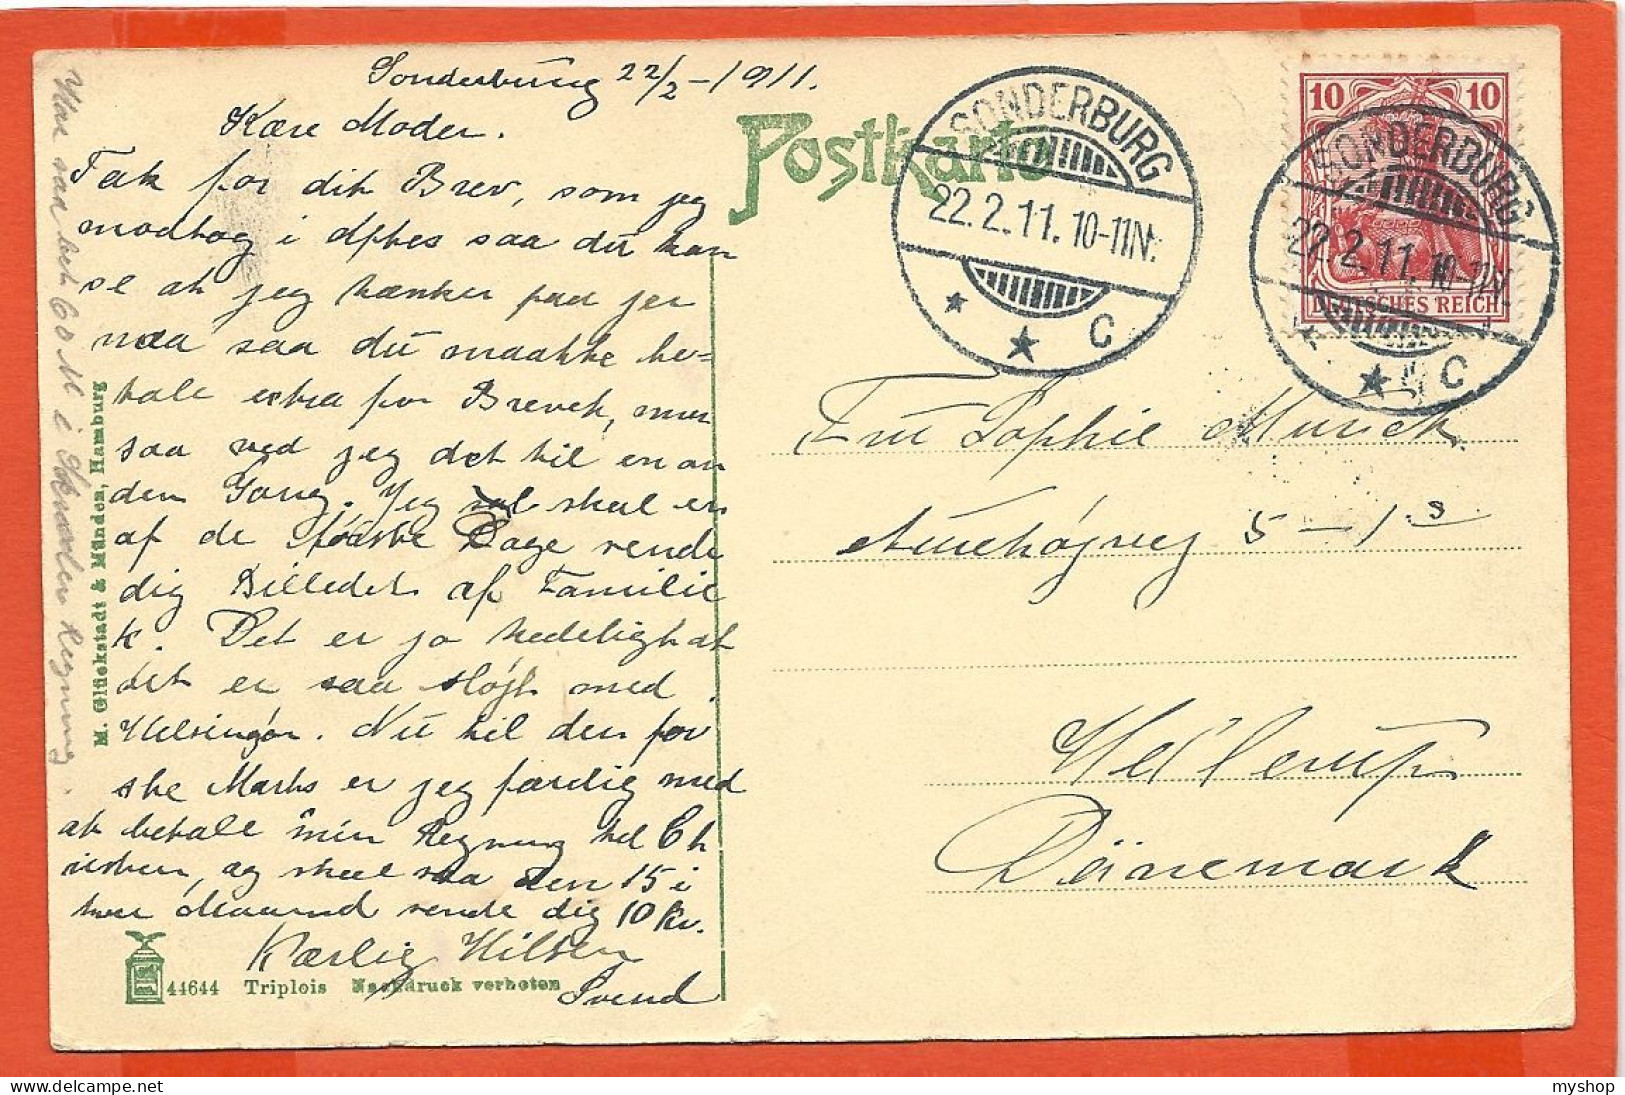 Sonderburg 22/2 - 1911.
Kære Moder.
Tak for dit Brev, som jeg
modtog i
saa du kan
se at jeg tænker paa jer
naa saa du maatte be=
tale extra for Brevet, men
saa ved jeg det til en an
den Gang. Jeg skal en
af de første Dage sende
dig Billedet af Familie
k. Det er jo kedeligt at
det er saa sløjt med
Helsingør. Nu til den før
ste Marts er jeg færdig med
at betale min Regning til Ch
risten, og skal saa den 15 i
hver Maaned sende dig 10 Kr.
Kærlig Hilsen
Svend
60 M i
Regning
M. Glückstadt & Münden, Hamburg
44644 Triplois Nachdruck verboten
Postkarte
SONDERBURG
22.2.11. 10-11N.
C
10 10
DEUTSCHES REICH
SONDERBURG
22.2.11. 10-11N.
C
Fru Sophie Munck.
5 - 1 s
Hellerup
Dänemark
myshop